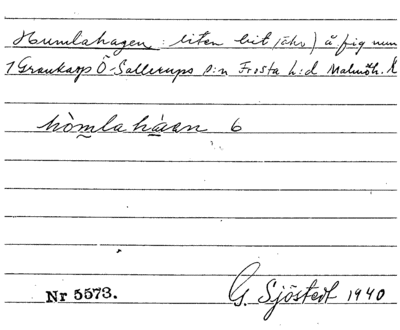 Humlahagen : liten bit (åkr) å fig num
1 Grankarp Ö-Sallerups s:n Frosta h:d Malmöh. l.
hòmlahåan 6
Nr 5573.
G. Sjöstedt 1940